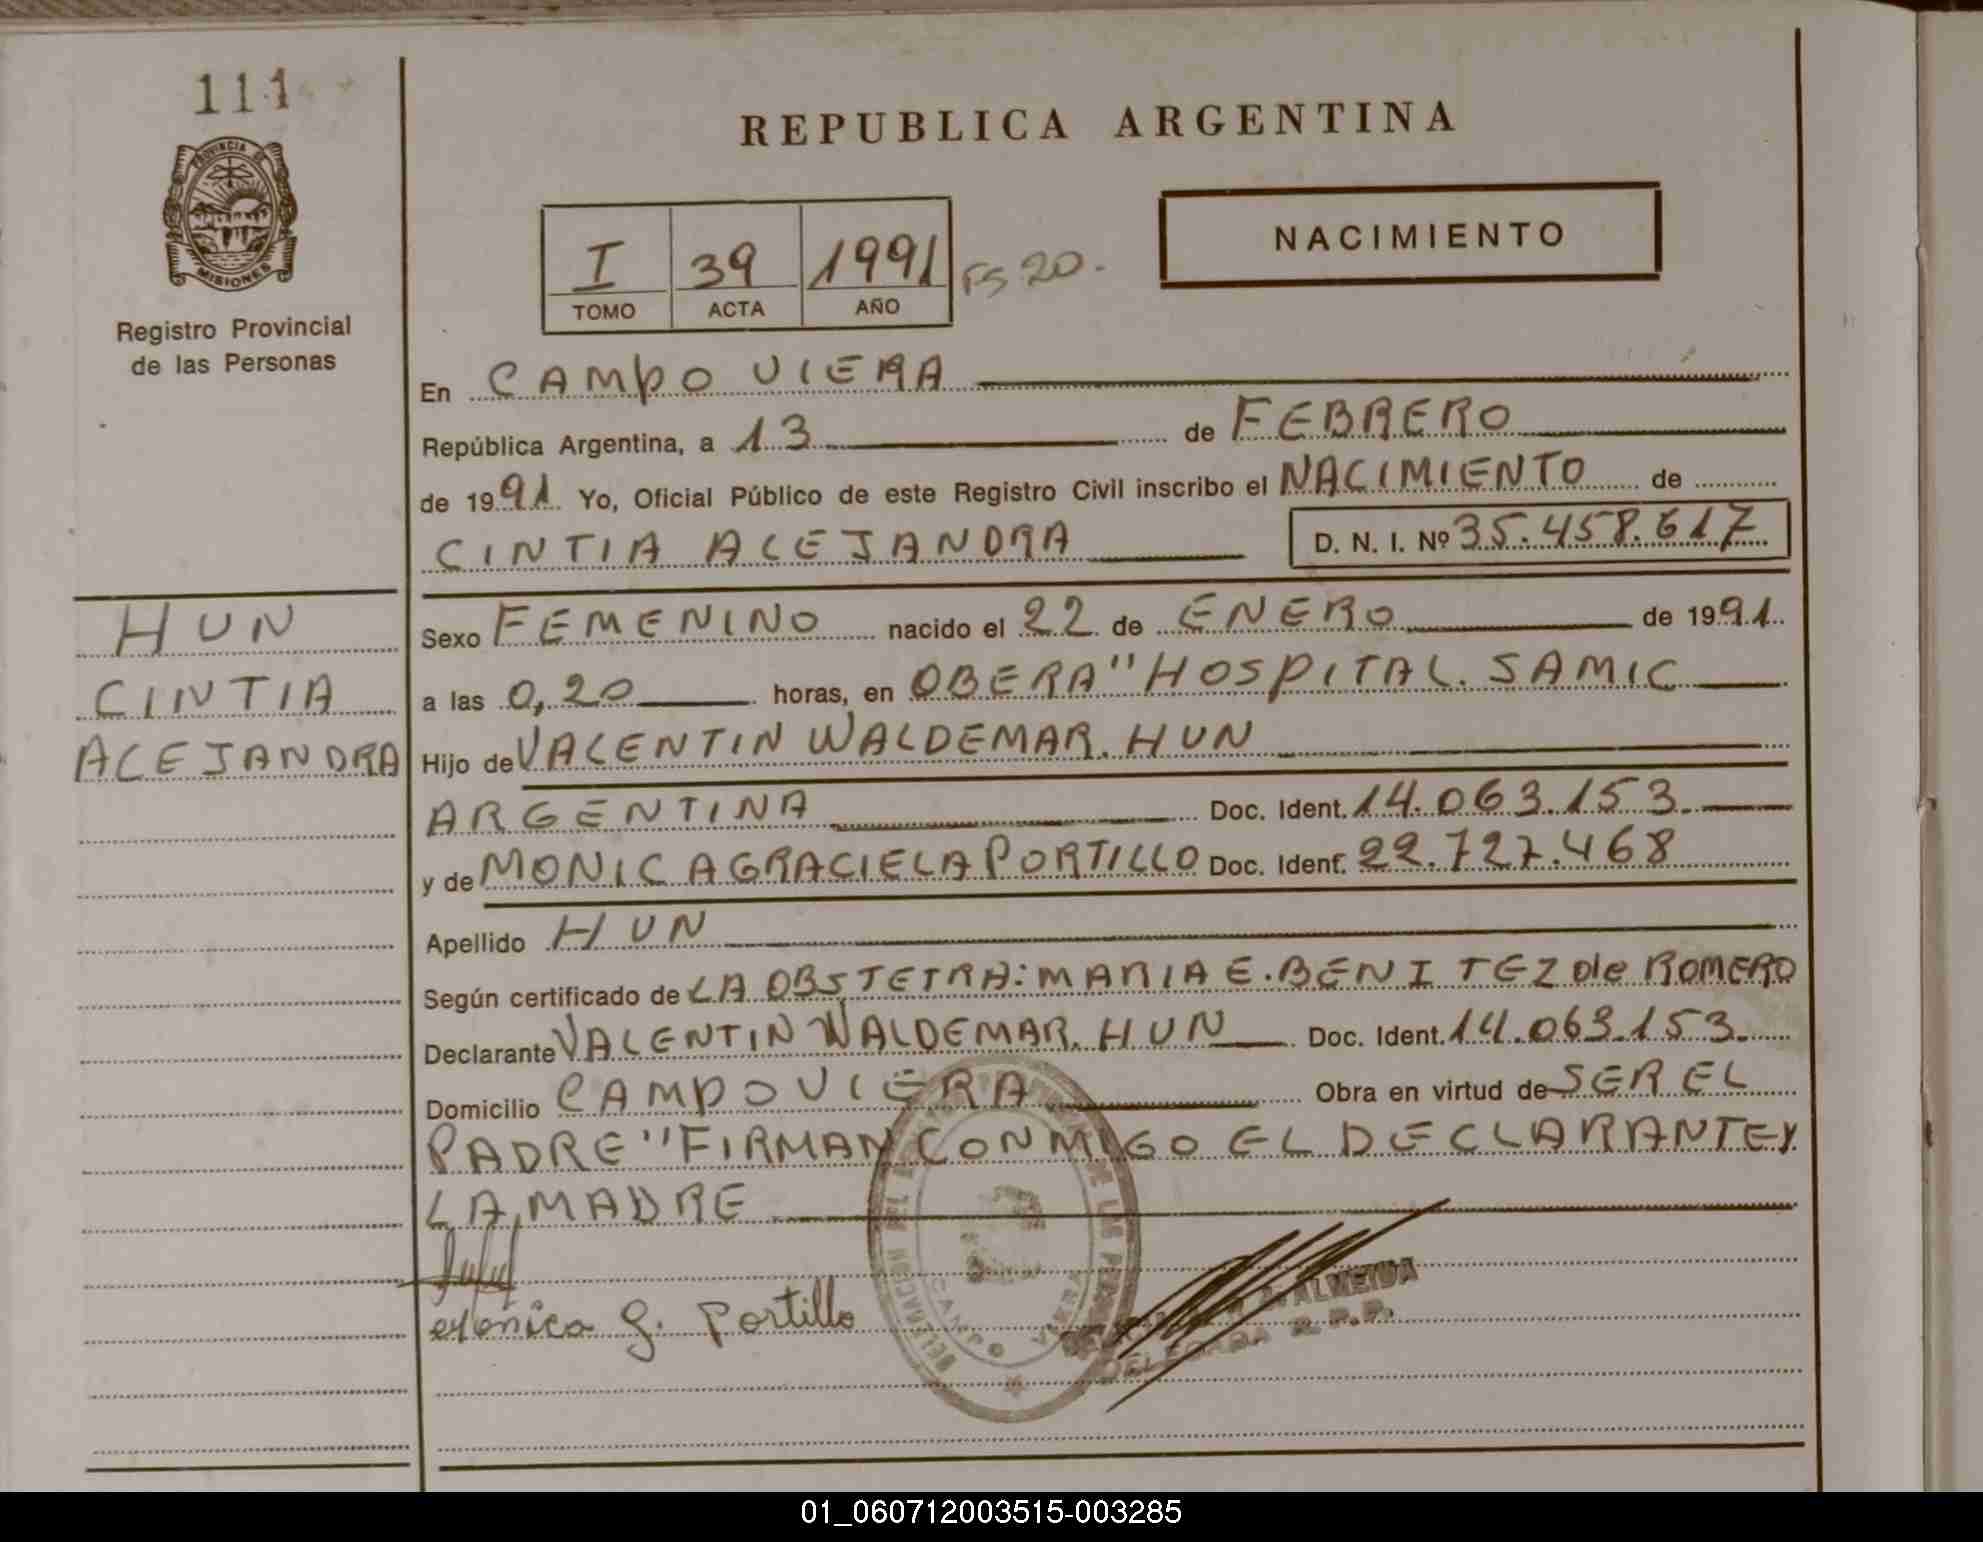 111
PROVINCIA DE
MISIONES
Registro Provincial
de las Personas
REPUBLICA ARGENTINA
NACIMIENTO
I 39 1991 FS 20.
TOMO ACTA AÑO
En CAMPO VIERA
República Argentina, a 13 de FEBRERO
de 1991. Yo, Oficial Público de este Registro Civil inscribo el NACIMIENTO de
CINTIA ALEJANDRA D. N. I. Nº 35.458.617
HUN
CINTIA
ALEJANDRA
Sexo FEMENINO nacido el 22 de ENERO de 1991.
a las 0,20 horas, en OBERA "HOSPITAL. SAMIC
Hijo de VALENTIN WALDEMAR. HUN
ARGENTINA Doc. Ident. 14.063.153.
y de MONICA GRACIELA PORTILLO Doc. Ident. 22.727.468
Apellido HUN
Según certificado de LA OBSTETRA: MARIA E. BENITEZ de ROMERO
Declarante VALENTIN WALDEMAR. HUN Doc. Ident. 14.063.153.
Domicilio CAMPO VIERA Obra en virtud de SER EL
PADRE "FIRMAN CONMIGO EL DECLARANTE Y
LA MADRE
Mónica G. Portillo
DELEGACION DEL
DE LAS PERSONAS
CAMPO VIERA
ALMEIDA
DELEGADA R. P. P.
01_060712003515-003285